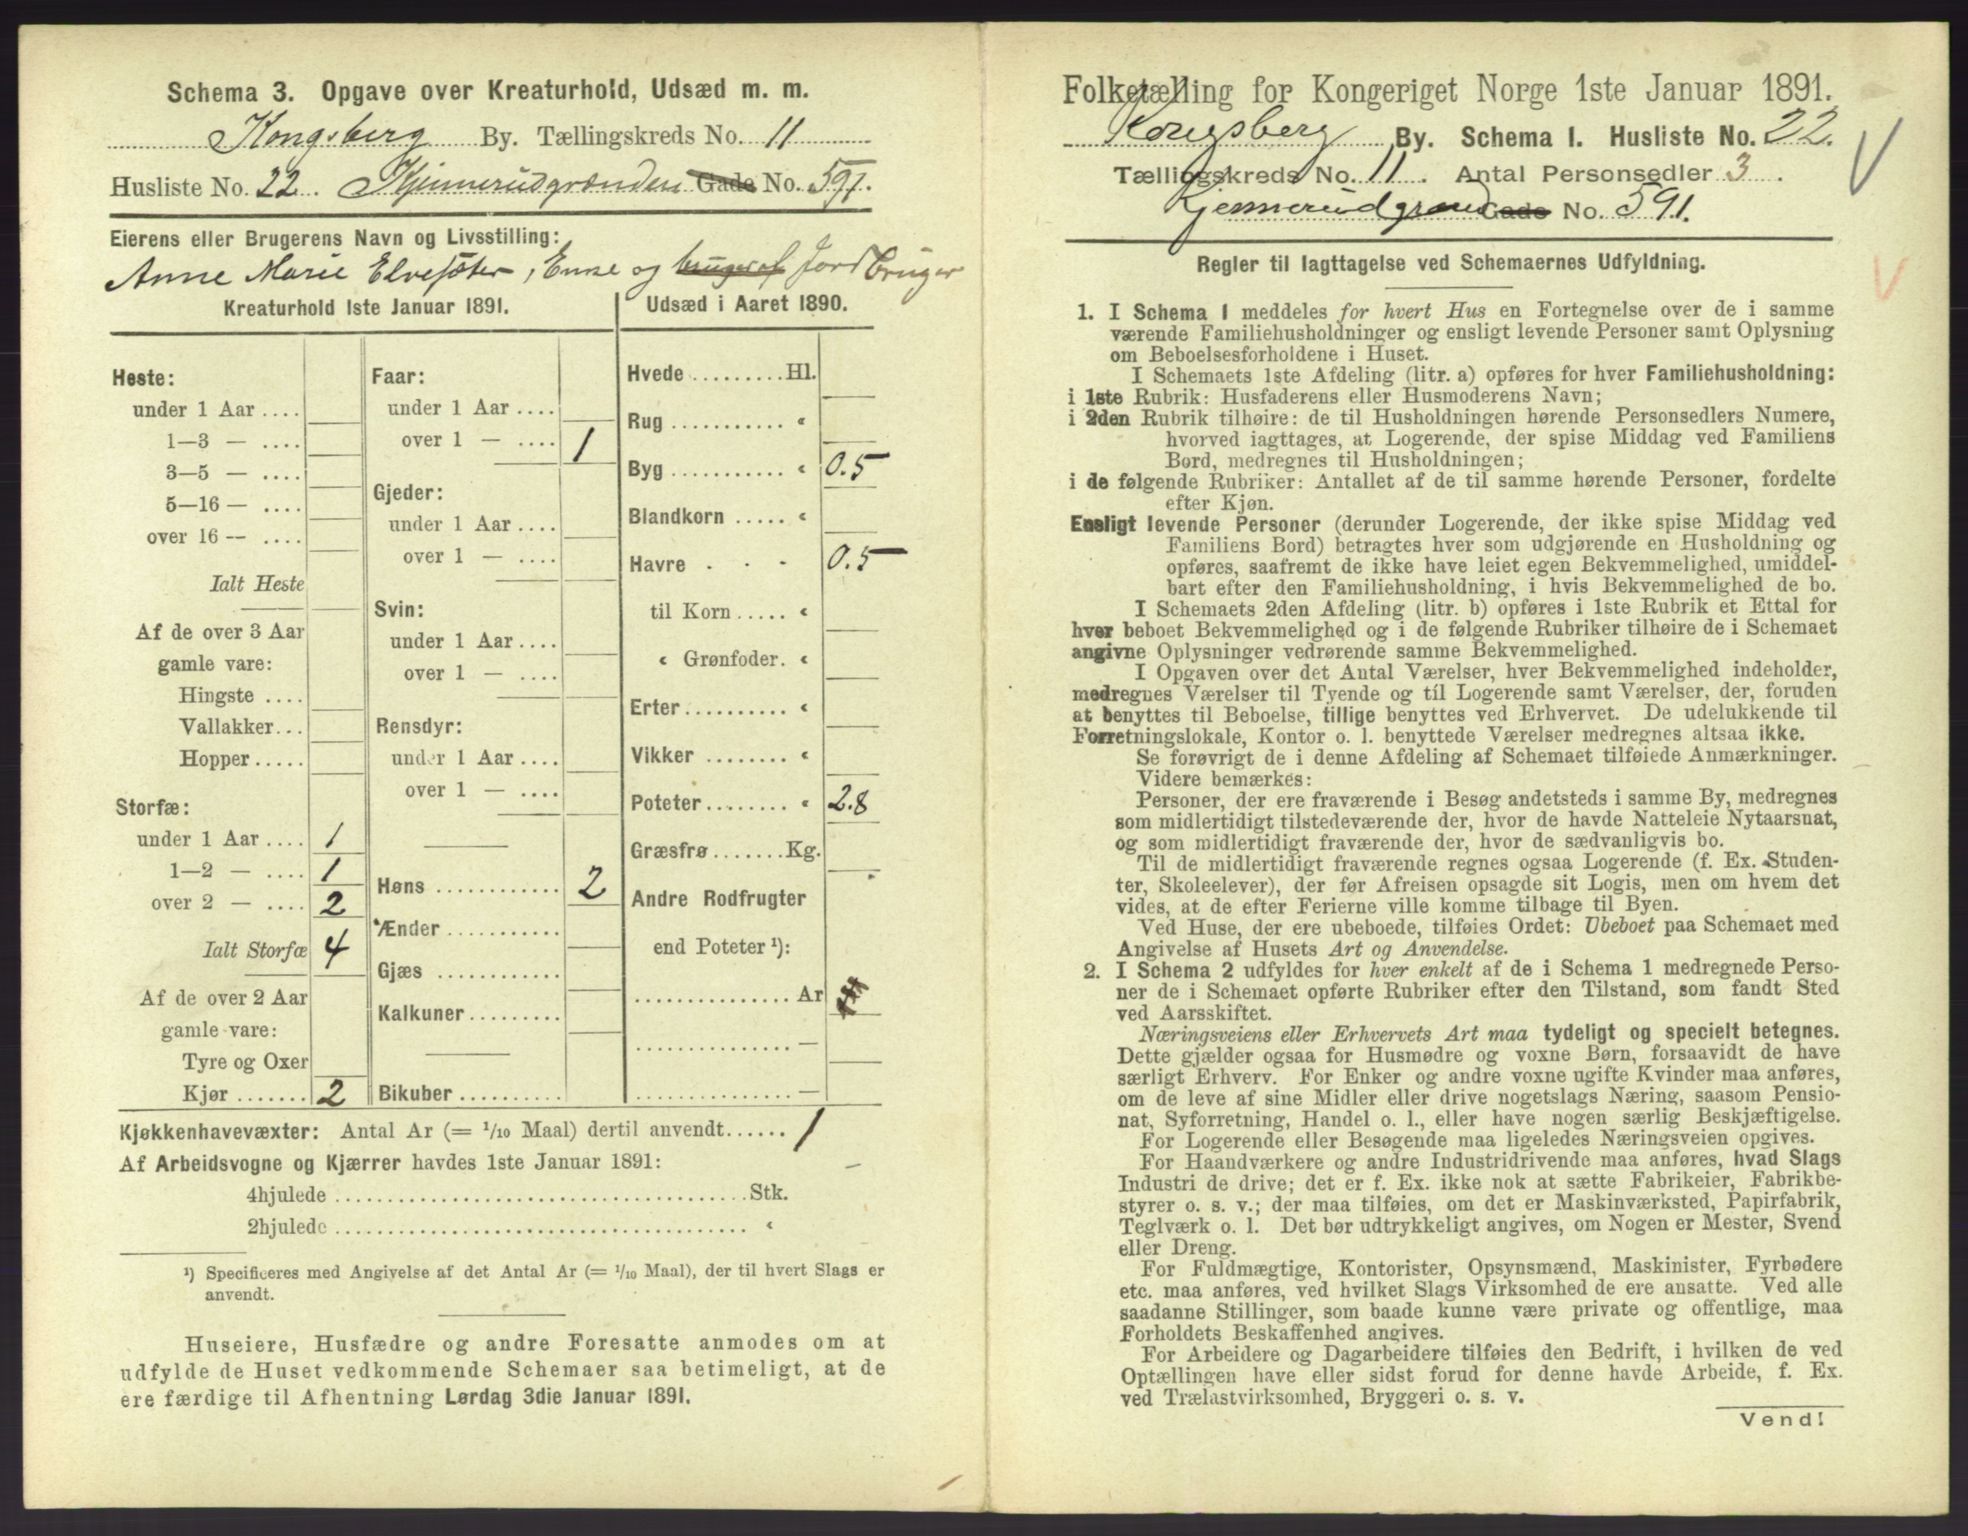 Schema 3. Opgave over Kreaturhold, Udsæd m. m.
Kongsberg By. Tællingskreds No. 11
Husliste No. 22. Kjennerudgrænden Gade No. 591.
Eierens eller Brugerens Navn og Livsstilling:
Anne Marie Elvesæter, Enke og bruger af Jordbruger
Kreaturhold 1ste Januar 1891.
Heste:
under 1 Aar ....
1—3 — ....
3—5 — ....
5—16 — ....
over 16 — ....
Ialt Heste
Af de over 3 Aar
gamle vare:
Hingste ....
Vallakker...
Hopper.....
Storfæ:
under 1 Aar .... 1
1—2 — .... 1
over 2 — .... 2
Ialt Storfæ 4
Af de over 2 Aar
gamle vare:
Tyre og Oxer
Kjør ....... 2
Faar:
under 1 Aar ....
over 1 — .... 1
Gjeder:
under 1 Aar ....
over 1 — ....
Svin:
under 1 Aar ....
over 1 — ....
Rensdyr:
under 1 Aar ....
over 1 — ....
Høns ............ 2
Ænder ...........
Gjæs ............
Kalkuner .........
Bikuber ..........
Udsæd i Aaret 1890.
Hvede .........Hl.
Rug ........... «
Byg ........... « 0.5
Blandkorn ..... «
Havre . - - 0.5
til Korn ..... «
« Grønfoder. «
Erter ......... «
Vikker ........ «
Poteter........ « 2.8
Græsfrø .......Kg.
Andre Rodfrugter
end Poteter ¹):
............... Ar
............... —
............... —
Kjøkkenhavevæxter: Antal Ar (= 1/10 Maal) dertil anvendt...... 1
Af Arbeidsvogne og Kjærrer havdes 1ste Januar 1891: —
4hjulede ........................................Stk.
2hjulede ........................................ «
¹) Specificeres med Angivelse af det Antal Ar (= 1/10 Maal), der til hvert Slags er
anvendt.
Huseiere, Husfædre og andre Foresatte anmodes om at
udfylde de Huset vedkommende Schemaer saa betimeligt, at de
ere færdige til Afhentning Lørdag 3die Januar 1891.
Folketælling for Kongeriget Norge 1ste Januar 1891.
Kongsberg By. Schema I. Husliste No. 22.
Tællingskreds No. 11. Antal Personsedler 3.
Kjennerudgrænd Gade No. 591.
Regler til Iagttagelse ved Schemaernes Udfyldning.
1. I Schema 1 meddeles for hvert Hus en Fortegnelse over de i samme
værende Familiehusholdninger og ensligt levende Personer samt Oplysning
om Beboelsesforholdene i Huset.
I Schemaets 1ste Afdeling (litr. a) opføres for hver Familiehusholdning:
i 1ste Rubrik: Husfaderens eller Husmoderens Navn;
i 2den Rubrik tilhøire: de til Husholdningen hørende Personsedlers Numere,
hvorved iagttages, at Logerende, der spise Middag ved Familiens
Bord, medregnes til Husholdningen;
i de følgende Rubriker: Antallet af de til samme hørende Personer, fordelte
efter Kjøn.
Ensligt levende Personer (derunder Logerende, der ikke spise Middag ved
Familiens Bord) betragtes hver som udgjørende en Husholdning og
opføres, saafremt de ikke have leiet egen Bekvemmelighed, umiddel-
bart efter den Familiehusholdning, i hvis Bekvemmelighed de bo.
I Schemaets 2den Afdeling (litr. b) opføres i 1ste Rubrik et Ettal for
hver beboet Bekvemmelighed og i de følgende Rubriker tilhøire de i Schemaet
angivne Oplysninger vedrørende samme Bekvemmelighed.
I Opgaven over det Antal Værelser, hver Bekvemmelighed indeholder,
medregnes Værelser til Tyende og til Logerende samt Værelser, der, foruden
at benyttes til Beboelse, tillige benyttes ved Erhvervet. De udelukkende til
Forretningslokale, Kontor o. l. benyttede Værelser medregnes altsaa ikke.
Se forøvrigt de i denne Afdeling af Schemaet tilføiede Anmærkninger.
Videre bemærkes:
Personer, der ere fraværende i Besøg andetsteds i samme By, medregnes
som midlertidigt tilstedeværende der, hvor de havde Natteleie Nytaarsnat,
og som midlertidigt fraværende der, hvor de sædvanligvis bo.
Til de midlertidigt fraværende regnes ogsaa Logerende (f. Ex. Studen-
ter, Skoleelever), der før Afreisen opsagde sit Logis, men om hvem det
vides, at de efter Ferierne ville komme tilbage til Byen.
Ved Huse, der ere ubeboede, tilføies Ordet: Ubeboet paa Schemaet med
Angivelse af Husets Art og Anvendelse.
2. I Schema 2 udfyldes for hver enkelt af de i Schema 1 medregnede Perso-
ner de i Schemaet opførte Rubriker efter den Tilstand, som fandt Sted
ved Aarsskiftet.
Næringsveiens eller Erhvervets Art maa tydeligt og specielt betegnes.
Dette gjælder ogsaa for Husmødre og voxne Børn, forsaavidt de have
særligt Erhverv. For Enker og andre voxne ugifte Kvinder maa anføres,
om de leve af sine Midler eller drive nogetslags Næring, saasom Pensio-
nat, Syforretning, Handel o. l., eller have nogen særlig Beskjæftigelse.
For Logerende eller Besøgende maa ligeledes Næringsveien opgives.
For Haandværkere og andre Industridrivende maa anføres, hvad Slags
Industri de drive; det er f. Ex. ikke nok at sætte Fabrikeier, Fabrikbe-
styrer o. s. v.; der maa tilføies, om det er Maskinværksted, Papirfabrik,
Teglværk o. l. Det bør udtrykkeligt angives, om Nogen er Mester, Svend
eller Dreng.
For Fuldmægtige, Kontorister, Opsynsmænd, Maskinister, Fyrbødere
etc. maa anføres, ved hvilket Slags Virksomhed de ere ansatte. Ved alle
saadanne Stillinger, som baade kunne være private og offentlige, maa
Forholdets Beskaffenhed angives.
For Arbeidere og Dagarbeidere tilføies den Bedrift, i hvilken de ved
Optællingen have eller sidst forud for denne havde Arbeide, f. Ex.
ved Trælastvirksomhed, Bryggeri o. s. v.
Vend!